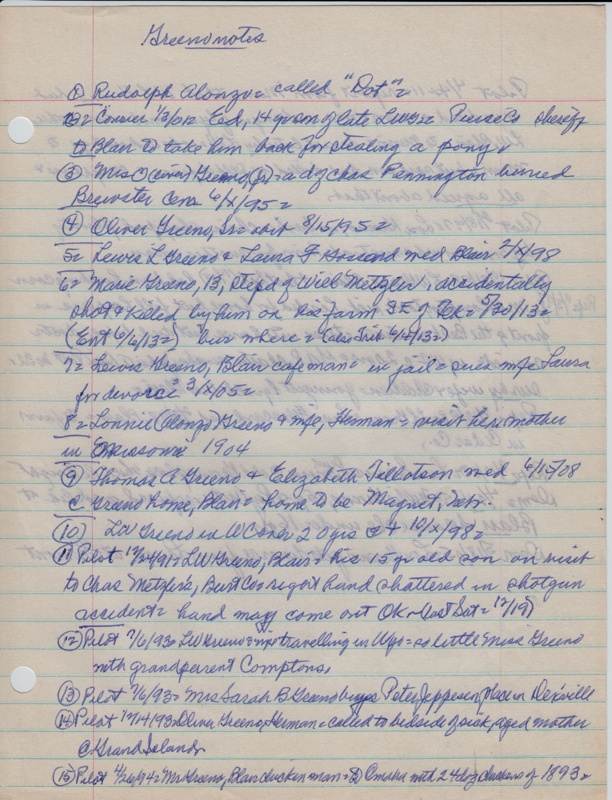 Greeno notes
① Rudolph Alonzo = called "Dot" =
2 = Courier 1/3/01 = Ed, 14 yr son of late LWG = Pierce Co sheriff
to Blair to take him back for stealing a pony.
③ Mrs C (Oliver) Greeno, (Jr) = a d of Chas Pennington buried
Brewster Cem 6/X/95 =
④ Oliver Greeno, Sr = visit 8/15/95 =
5 = Lewis L Greeno & Laura F med Blair 2/X/98
6 = Marie Greeno, 13, stepd of Will Metzler, accidentally
shot & killed by him on his farm SE of Tek = 5/30/13 =
(Ent 6/6/13 =) bur where = (also Trib 6/14/13 =)
7 = Lewis Greeno, Blair cafe man = in jail = sues wife Laura
for divorce 3/X/05 =
8 = Lonnie (Alonzo) Greeno & wife, Herman = visit her mother
in Missouri 1904
⑨ Thomas A Greeno & Elizabeth Tillotson med 6/15/08
@ Greeno home, Blair = home to be Magnet, Nebr.
⑩ LW Greeno in W Co over 20 yrs @ + 10/X/98 =
⑪ Pilot 12/24/91 = LW Greeno, Blair = his 15 yr old son on visit
to Chas Metzler's, Burt Co = rigot hand shattered in shotgun
accident = hand may come out OK = last Sat = 12/19)
⑫ Pilot 7/6/93 = LW Greeno & wife travelling in Wyo = so little Miss Greeno
with grandparent Comptons.
⑬ Pilot 7/6/93 = Mrs Sarah B Greeno buys Peter Jeppesen place in De Soto ville
⑭ Pilot 12/14/93 = Oliver Greeno, Herman = called to bedside of sick, aged mother
@ Grand Island.
⑮ Pilot 4/26/94 = Mr Greeno, Blair chicken man = to Omaha with 24 doz chickens of 1893 =